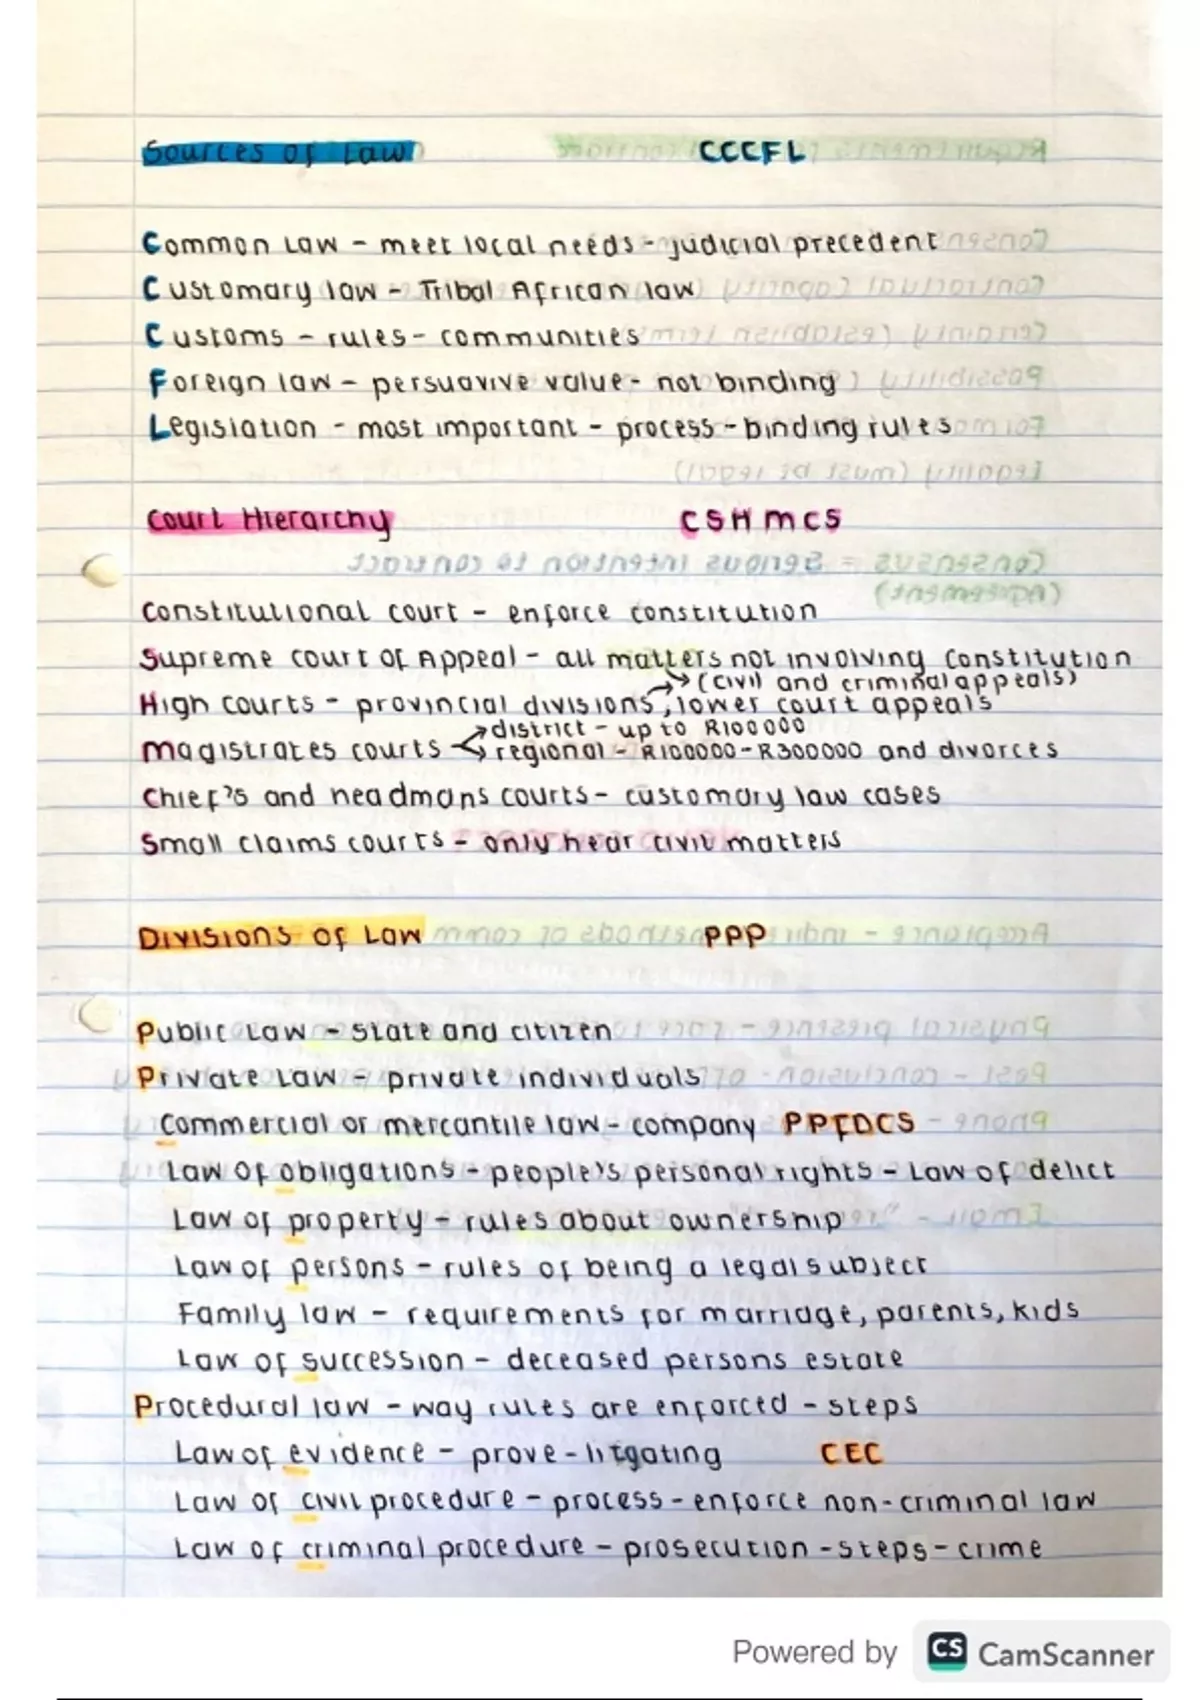 Sources of Law CCCFL
Common Law - meet local needs - judicial precedent
Customary law - Tribal African law
Customs - rules - communities
Foreign law - persuavive value - not binding
Legislation - most important - process - binding rules
Court Hierarchy CSHMCS
Constitutional court - enforce constitution
Supreme court of Appeal - all matters not involving constitution
(civil and criminal appeals)
High courts - provincial divisions, lower court appeals
district - up to R100000
Magistrates courts regional - R100000 - R300000 and divorces
Chief's and headmans courts - customary law cases
Small claims courts - only hear civil matters
Divisions of Law PPP
Public Law - state and citizen
Private Law - private individuals
Commercial or mercantile law - company PPFDCS
Law of obligations - people's personal rights - Law of delict
Law of property - rules about ownership
Law of persons - rules of being a legal subject
Family law - requirements for marriage, parents, kids
Law of succession - deceased persons estate
Procedural law - way rules are enforced - steps
Law of evidence - prove - litgating CEC
Law of civil procedure - process - enforce non-criminal law
Law of criminal procedure - prosecution - steps - crime
Powered by CS CamScanner